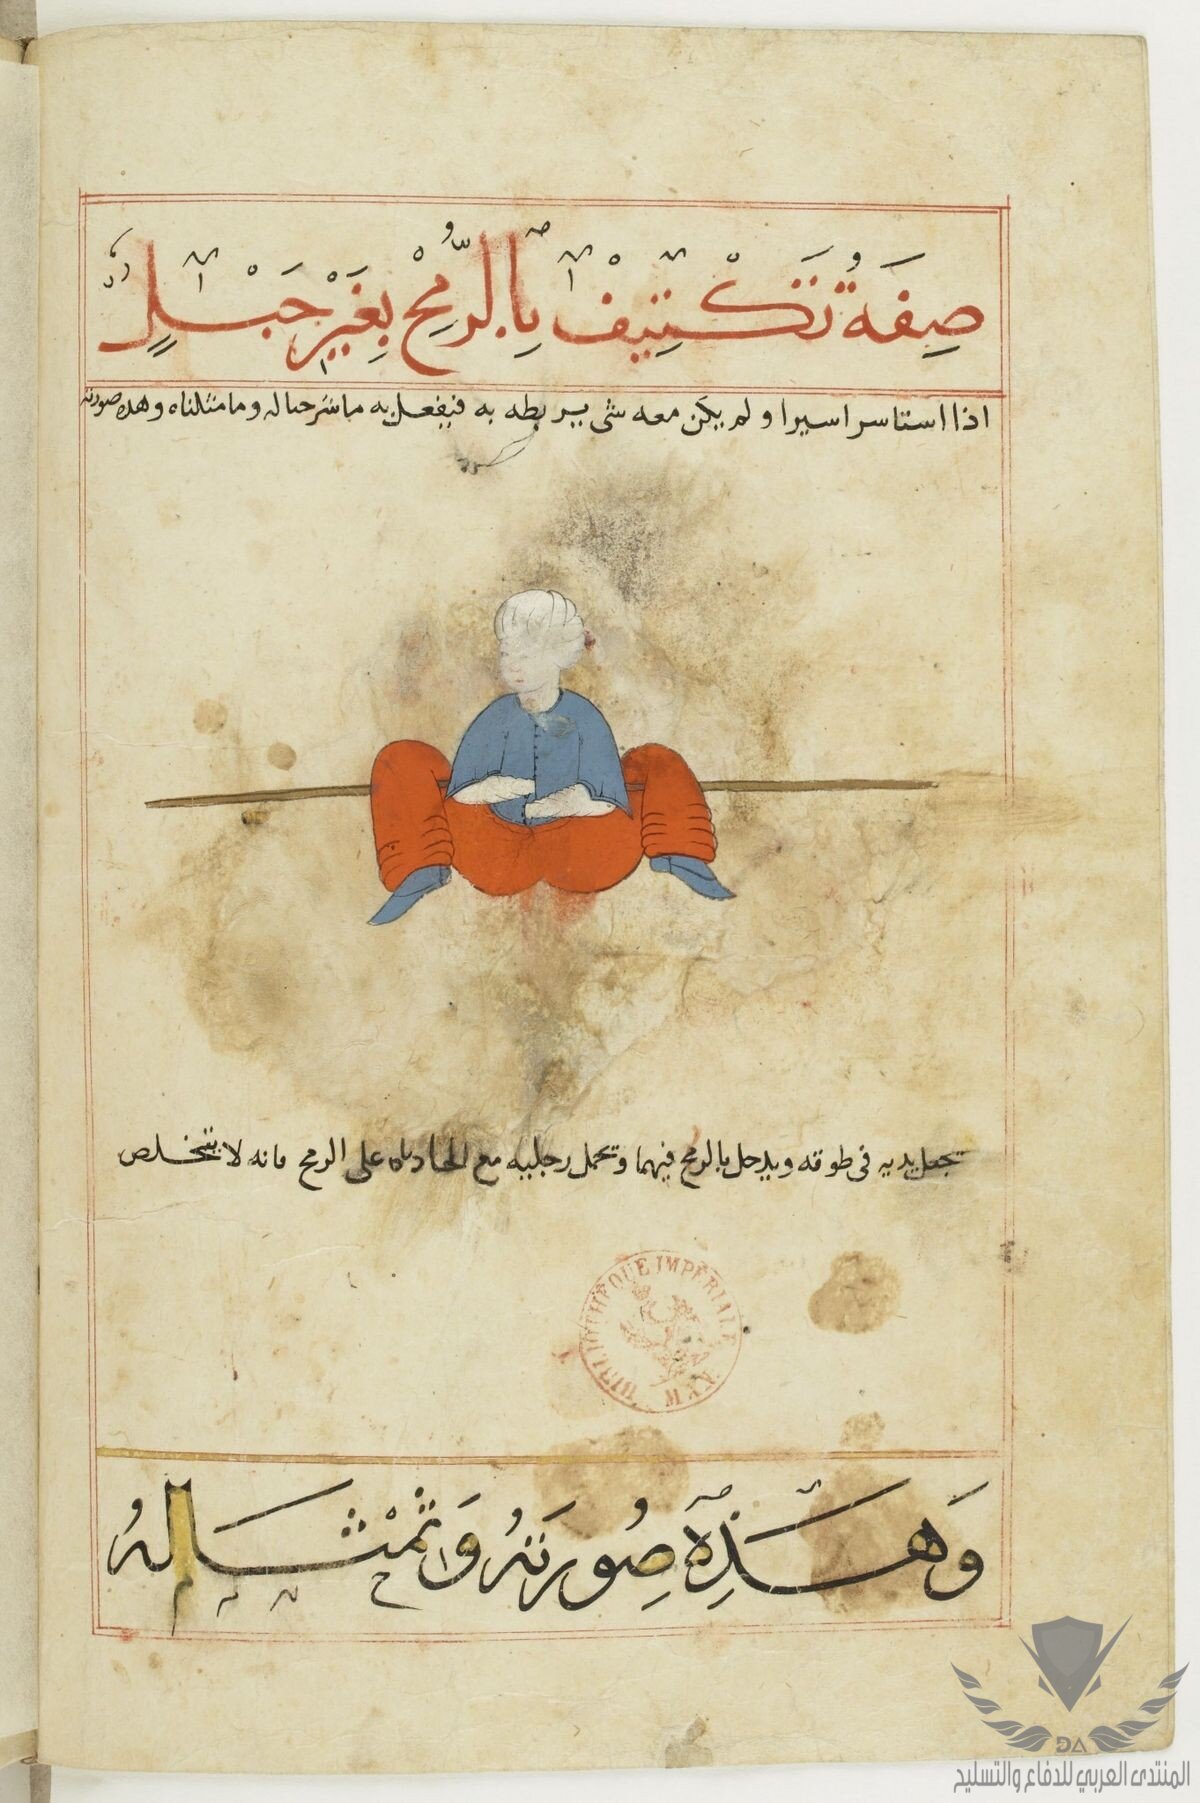 صِفَةُ تَكْتِيفْ بِالرُّمِحْ بِغَيْرِ حَبْلٍ
اذا استاسر اسيرا ولم يكن معه شى يربطه به فيفعل به ما شرحناله وما مثلناه وهده صورته
تجعل يديه فى طوقه ويدخل بالرمح فيهما وتحمل رجليه مع على الرمح فانه لا يتخلص
BIBLIOTHÈQUE IMPÉRIALE MAN
وَهَذِهِ صُورَتهُ وَتمْثَالهُ
DA
المنتدى العربي للدفاع والتسليح